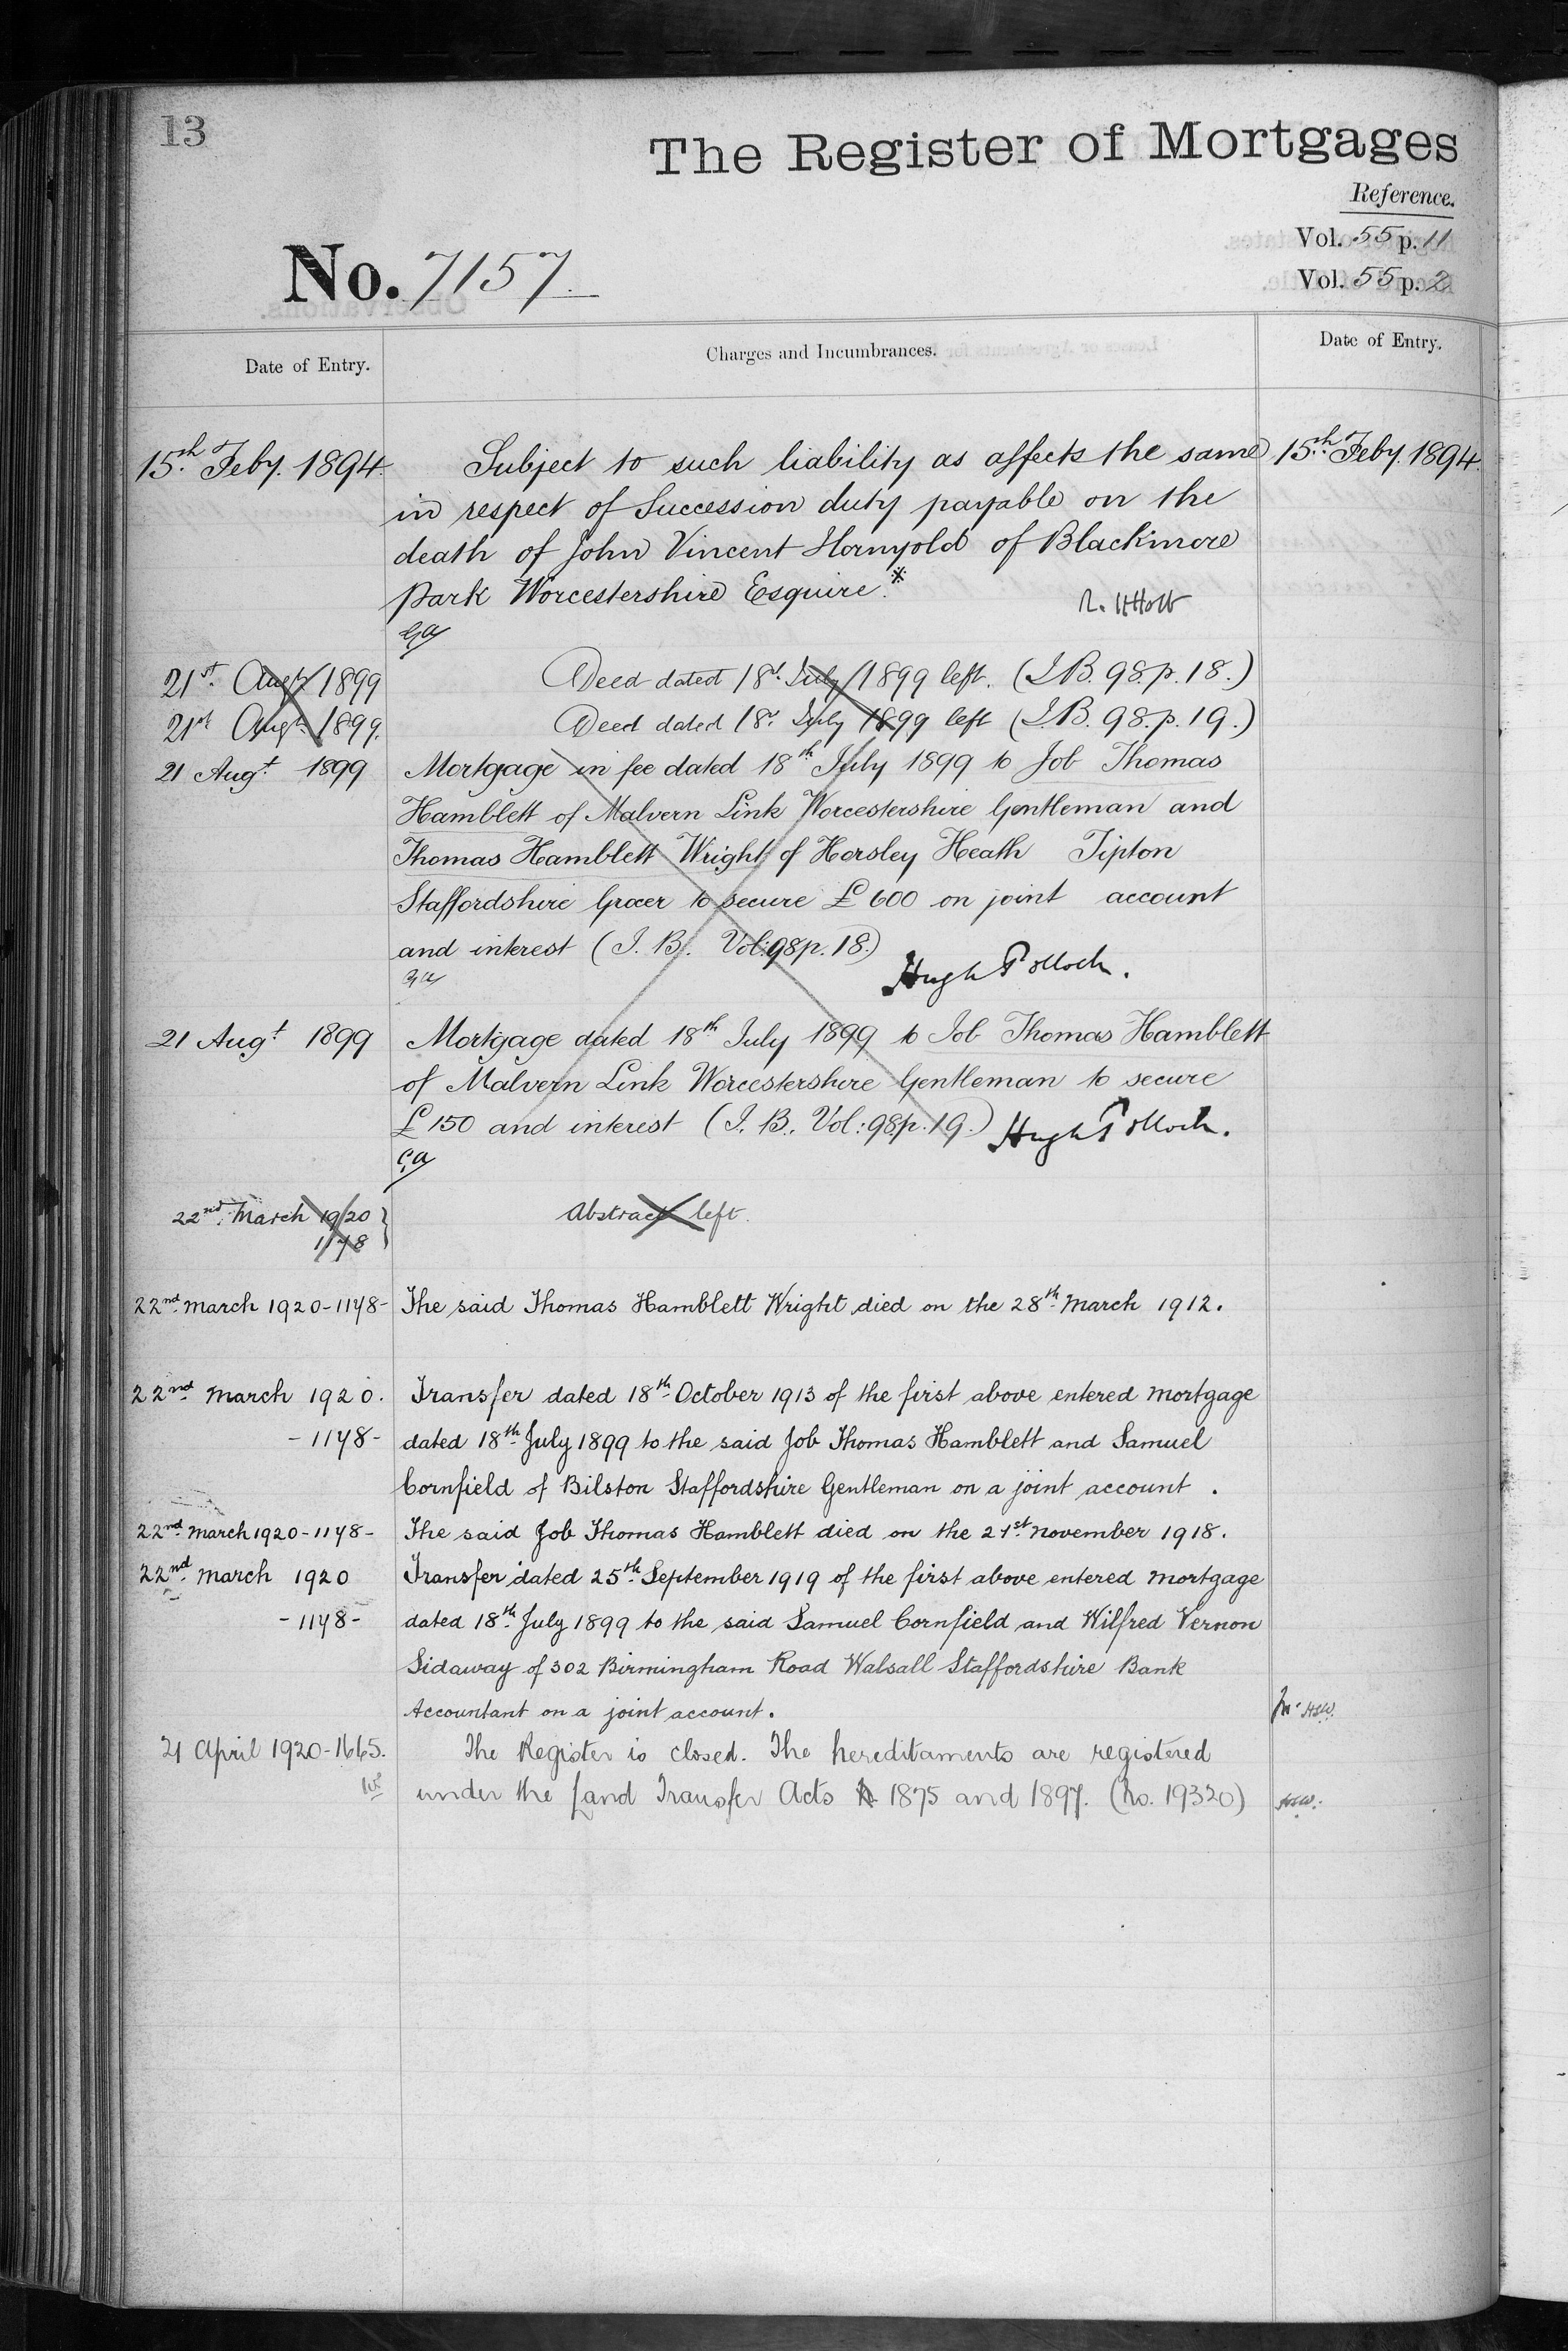 13
The Register of Mortgages
Reference.
Vol. 55 p. 11
No. 7157.
Vol. 55 p. 2
Date of Entry.
Charges and Incumbrances.
Date of Entry.
15th Feby. 1894. Subject to such liability as affects the same 15th Feby. 1894.
in respect of Succession duty payable on the
death of John Vincent Hornyold of Blackmore
Park Worcestershire Esquire.*
R. H Holt
21st Augt 1899 Deed dated 18th July 1899 left. (I.B. 98. p. 18.)
21st Augt 1899. Deed dated 18th July 1899 left (I.B. 98. p. 19.)
21 Augt 1899 Mortgage in fee dated 18th July 1899 to Job Thomas
Hamblett of Malvern Link Worcestershire Gentleman and
Thomas Hamblett Wright of Horsley Heath Tipton
Staffordshire Grocer to secure £600 on joint account
and interest (I. B. Vol: 98 p. 18.)
Hugh Pollock.
21 Augt 1899 Mortgage dated 18th July 1899 to Job Thomas Hamblett
of Malvern Link Worcestershire Gentleman to secure
£150 and interest (I. B. Vol: 98 p. 19.) Hugh Pollock.
GA
22nd March 1920 Abstract left.
1178
22nd March 1920-1178- The said Thomas Hamblett Wright died on the 28th March 1912.
22nd March 1920. Transfer dated 18th October 1913 of the first above entered Mortgage
-1178- dated 18th July 1899 to the said Job Thomas Hamblett and Samuel
Cornfield of Bilston Staffordshire Gentleman on a joint account.
22nd March 1920-1178- The said Job Thomas Hamblett died on the 21st November 1918.
22nd March 1920 Transfer dated 25th September 1919 of the first above entered Mortgage
-1178- dated 18th July 1899 to the said Samuel Cornfield and Wilfred Vernon
Sidaway of 302 Birmingham Road Walsall Staffordshire Bank
Accountant on a joint account.
21 April 1920-1665. The Register is closed. The hereditaments are registered
under the Land Transfer Acts 1875 and 1897. (No. 19320)